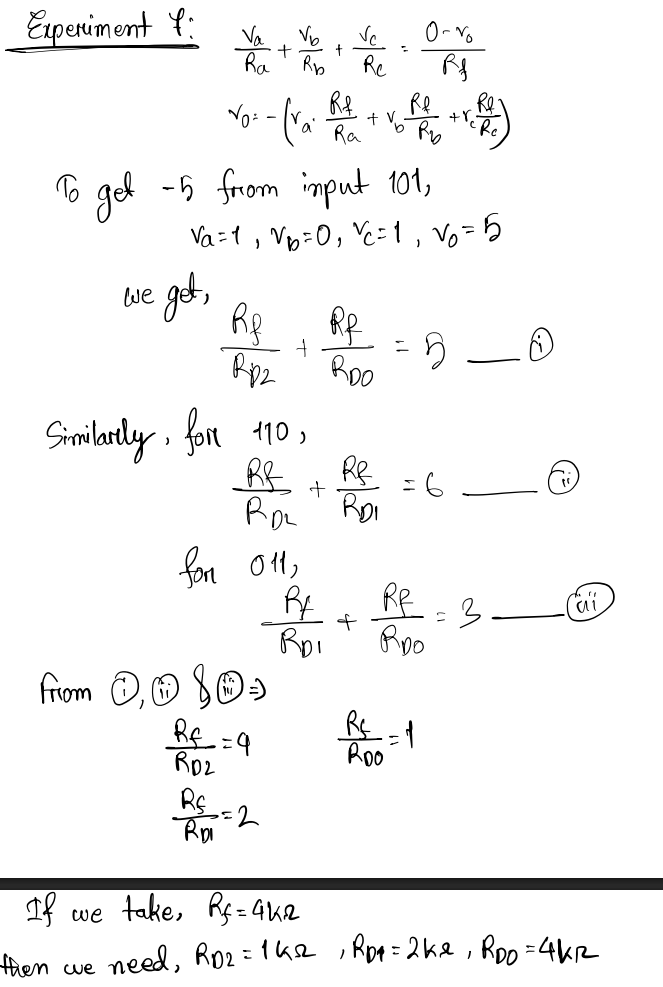 Experiment 7:
Va/Ra + Vb/Rb + Vc/Rc = 0-V₀/Rf
V₀ = -(Va. Rf/Ra + Vb Rf/Rb + Vc Rf/Rc)
To get -5 from input 101,
Va=1, Vb=0, Vc=1, V₀=5
we get,
Rf/RD2 + Rf/RD0 = 5 — (i)
Similarly, for 110,
Rf/RD2 + Rf/RD1 = 6 — (ii)
for 011,
Rf/RD1 + Rf/RD0 = 3 — (iii)
From (i), (ii) & (iii) ⇒
Rf/RD2 = 4 Rf/RD0 = 1
Rf/RD1 = 2
If we take, Rf = 4kΩ
then we need, RD2 = 1kΩ, RD1 = 2kΩ, RD0 = 4kΩ